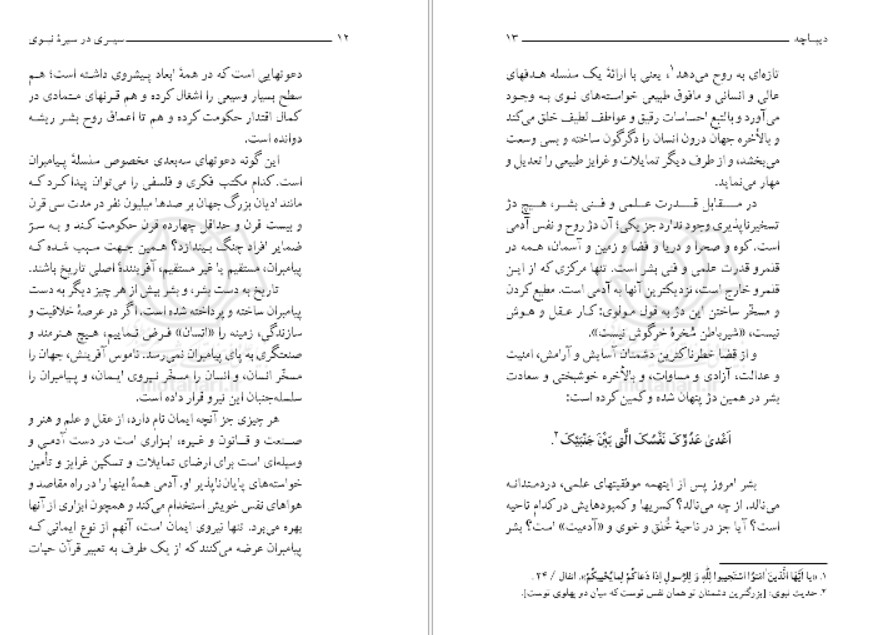 ۱۲ سیـری در سیرهٔ نبـوی
دعوتهایی است که در همهٔ ابعاد پیشروی داشته است؛ هم
سطح بسیار وسیعی را اشغال کرده و هم قرنهای متمادی در
کمال اقتدار حکومت کرده و هم تا اعماق روح بشر ریشه
دوانده است.
این گونه دعوتهای سه‌بعدی مخصوص سلسلهٔ پیامبران
است. کدام مکتب فکری و فلسفی را می‌توان پیدا کرد که
مانند ادیان بزرگ جهان بر صدها میلیون نفر در مدت سی قرن
و بیست قرن و حداقل چهارده قرن حکومت کند و به سرّ
ضمایر افراد چنگ بیندازد؟ همین جهت سبب شده که
پیامبران، مستقیم یا غیر مستقیم، آفرینندهٔ اصلی تاریخ باشند.
تاریخ به دست بشر، و بشر بیش از هر چیز دیگر به دست
پیامبران ساخته و پرداخته شده است. اگر در عرصهٔ خلاقیت و
سازندگی، زمینه را «انسان» فرض نماییم، هیچ هنرمند و
صنعتگری به پای پیامبران نمی‌رسد. ناموس آفرینش، جهان را
مسخّر انسان، و انسان را مسخّر نیروی ایمان، و پیامبران را
سلسله‌جنبان این نیرو قرار داده است.
هر چیزی جز آنچه ایمان نام دارد، از عقل و علم و هنر و
صنعت و قانون و غیره، ابزاری است در دست آدمی و
وسیله‌ای است برای ارضای تمایلات و تسکین غرایز و تأمین
خواسته‌های پایان‌ناپذیر او. آدمی همهٔ اینها را در راه مقاصد و
هواهای نفس خویش استخدام می‌کند و همچون ابزاری از آنها
بهره می‌برد. تنها نیروی ایمان است، آنهم از نوع ایمانی که
پیامبران عرضه می‌کنند که از یک طرف به تعبیر قرآن حیات
دیبـاچه ۱۳
تازه‌ای به روح می‌دهد۱، یعنی با ارائهٔ یک سلسله هدفهای
عالی و انسانی و مافوق طبیعی خواسته‌های نوی به وجود
می‌آورد و بالتبع احساسات رقیق و عواطف لطیف خلق می‌کند
و بالأخره جهان درون انسان را دگرگون ساخته و بسی وسعت
می‌بخشد، و از طرف دیگر تمایلات و غرایز طبیعی را تعدیل و
مهار می‌نماید.
در مقابل قدرت علمی و فنی بشر، هیچ دژ
تسخیرناپذیری وجود ندارد جز یکی؛ آن دژ روح و نفس آدمی
است. کوه و صحرا و دریا و فضا و زمین و آسمان، همه در
قلمرو قدرت علمی و فنی بشر است. تنها مرکزی که از این
قلمرو خارج است، نزدیکترین آنها به آدمی است. مطیع کردن
و مسخّر ساختن این دژ به قول مولوی: کار عقل و هوش
نیست، «شیر باطن سُخرهٔ خرگوش نیست».
و از قضا خطرناکترین دشمنان آسایش و آرامش، امنیت
و عدالت، آزادی و مساوات، و بالأخره خوشبختی و سعادت
بشر در همین دژ پنهان شده و کمین کرده است:
اَعْدیٰ عَدُوِّکَ نَفْسُکَ الَّتی بَیْنَ جَنْبَیْکَ ۲.
بشر امروز پس از اینهمه موفقیتهای علمی، دردمندانه
می‌نالد. از چه می‌نالد؟ کسریها و کمبودهایش در کدام ناحیه
است؟ آیا جز در ناحیهٔ خُلق و خوی و «آدمیت» است؟ بشر
۱. «یا اَیُّهَا الَّذینَ امَنُوا اسْتَجیبوا لِلّٰهِ وَ لِلرَّسولِ اِذا دَعاکُمْ لِما یُحْییکُمْ». انفال / ۲۴ .
۲. حدیث نبوی: [بزرگترین دشمنان تو همان نفس توست که میان دو پهلوی توست].
motahari.ir
motahari.ir